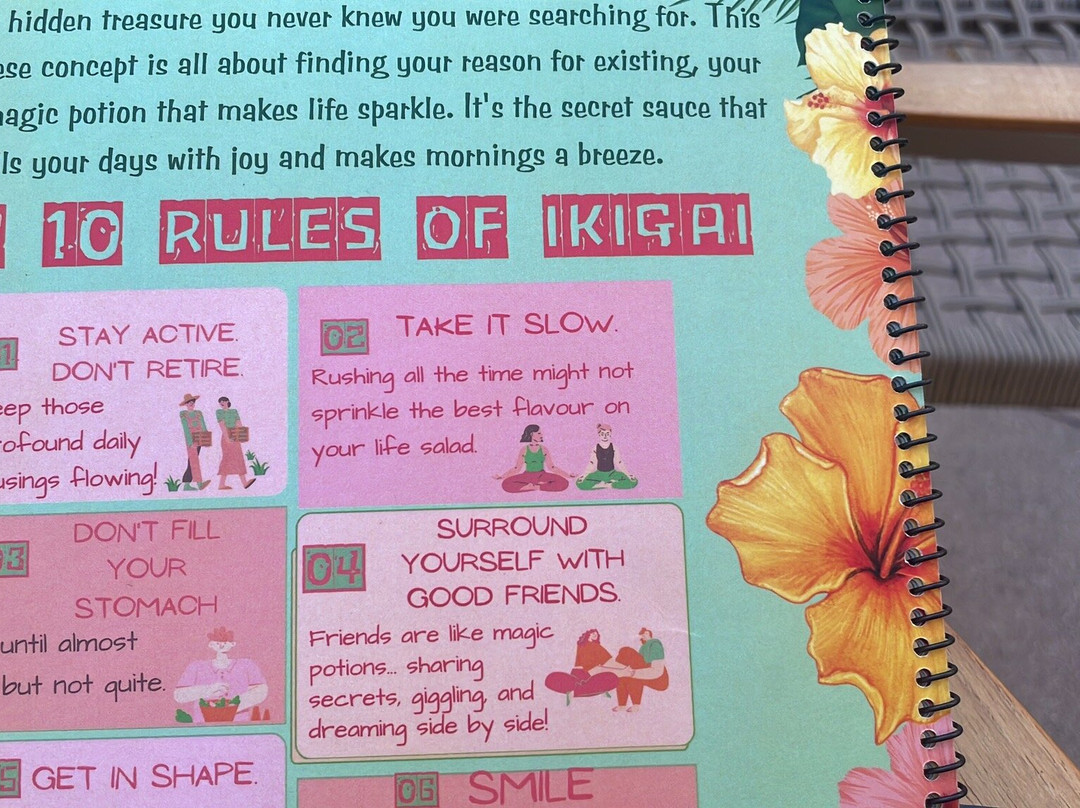 hidden treasure you never knew you were searching for. This
ese concept is all about finding your reason for existing, your
agic potion that makes life sparkle. It's the secret sauce that
ls your days with joy and makes mornings a breeze.
10 RULES OF IKIGAI
1
STAY ACTIVE.
DON'T RETIRE.
eep those
ofound daily
usings flowing!
02
TAKE IT SLOW.
Rushing all the time might not
sprinkle the best flavour on
your life salad.
03
DON'T FILL
YOUR
STOMACH
until almost
but not quite.
04
SURROUND
YOURSELF WITH
GOOD FRIENDS.
Friends are like magic
potions... sharing
secrets, giggling, and
dreaming side by side!
5
GET IN SHAPE.
06
SMILE